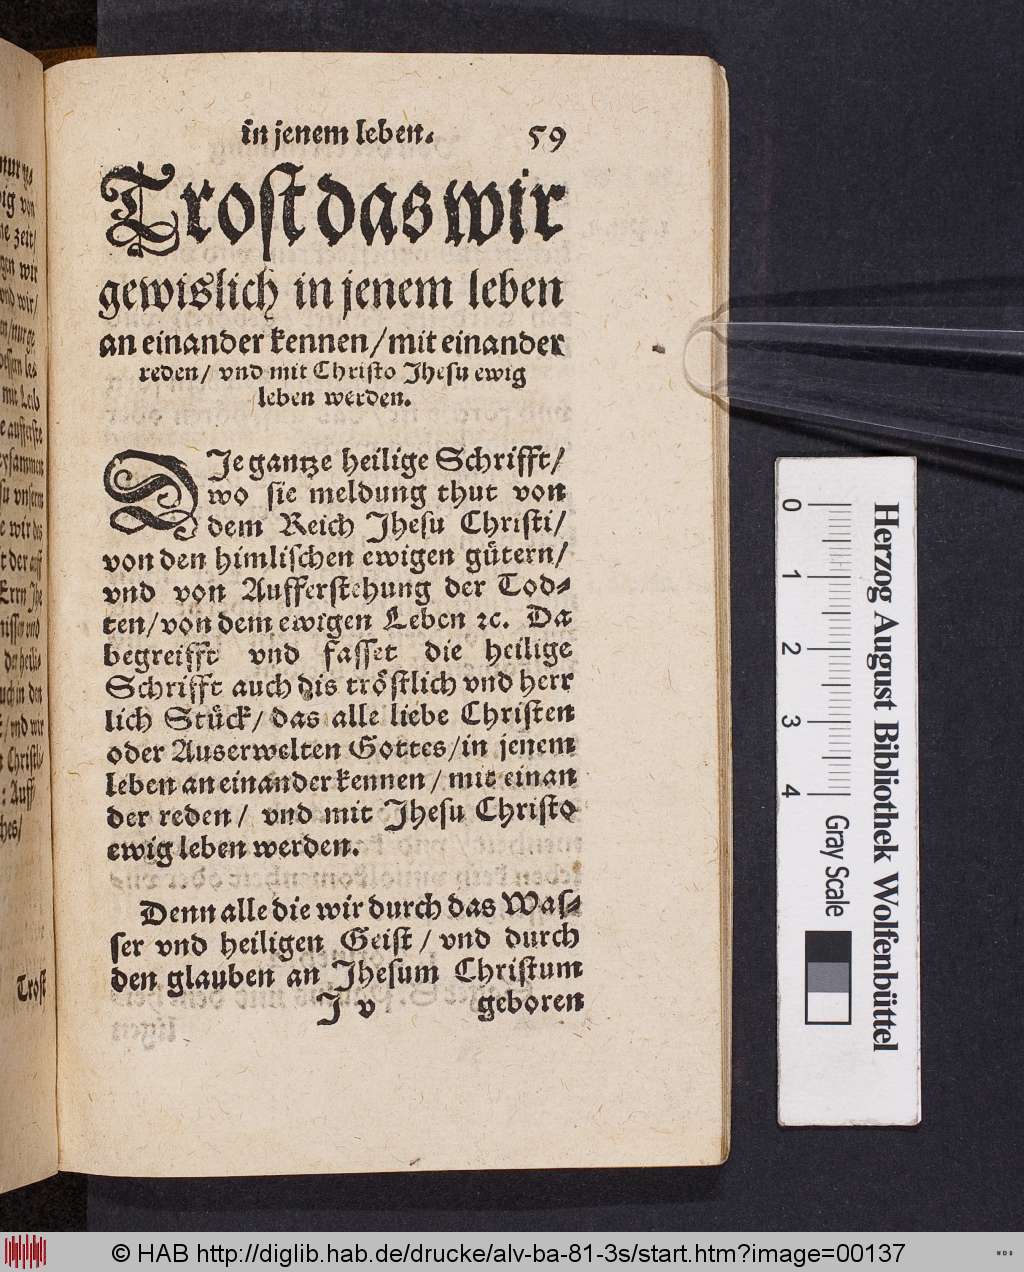 in jenem leben. 59
Trost das wir
gewislich in jenem leben
an einander kennen/mit einander
reden/ vnd mit Christo Jhesu ewig
leben werden.
DJe gantze heilige Schrifft/
wo sie meldung thut von
dem Reich Jhesu Christi/
von den himlischen ewigen gütern/
vnd von Aufferstehung der Tod⸗
ten/von dem ewigen Leben ꝛc. Da
begreifft vnd fasset die heilige
Schrifft auch dis tröstlich vnd herr
lich Stück/ das alle liebe Christen
oder Auserwelten Gottes/in jenem
leben an einander kennen/ mit einan
der reden/ vnd mit Jhesu Christo
ewig leben werden.
Denn alle die wir durch das Was⸗
ser vnd heiligen Geist/ vnd durch
den glauben an Jhesum Christum
J v geboren
Trost
0 1 2 3 4
Gray Scale
Herzog August Bibliothek Wolfenbüttel
© HAB http://diglib.hab.de/drucke/alv-ba-81-3s/start.htm?image=00137